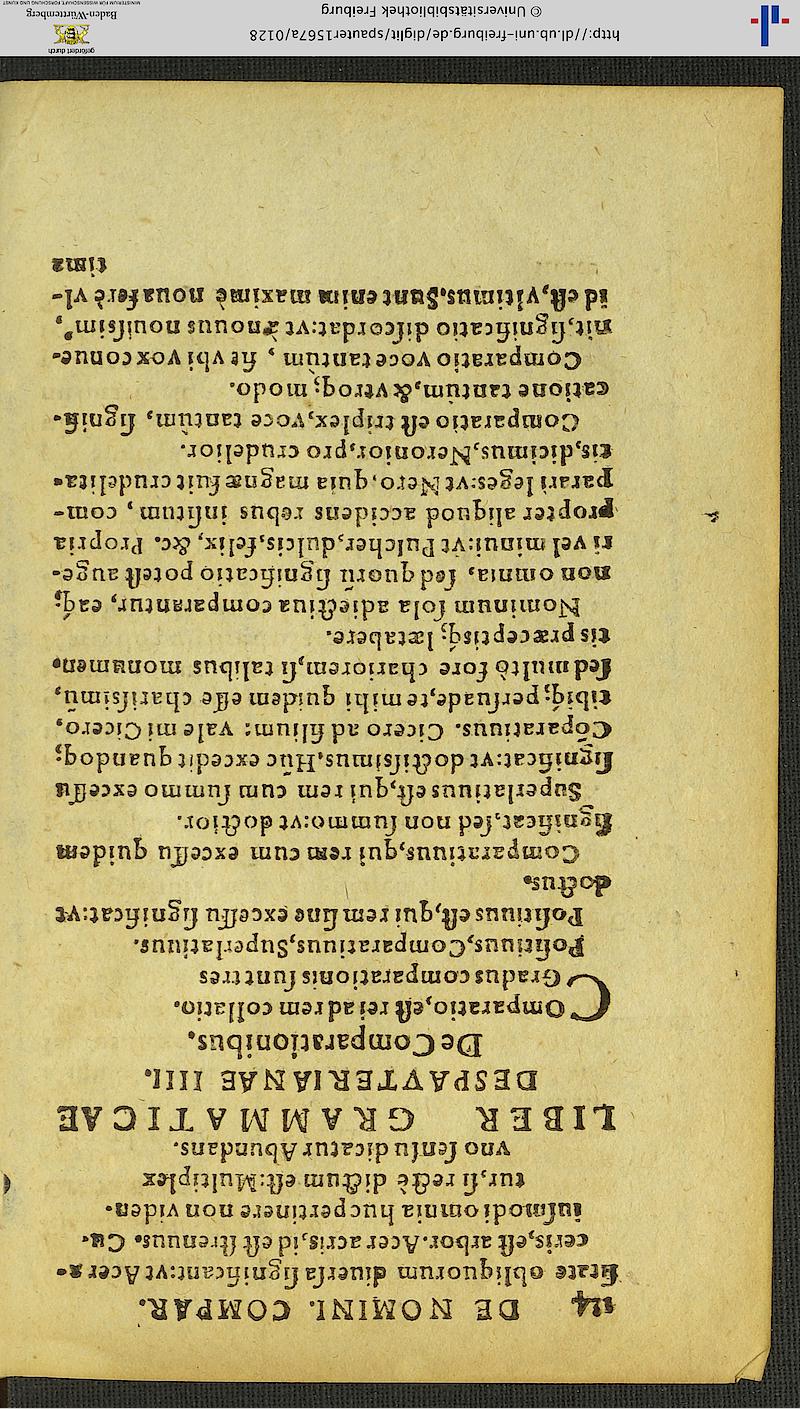 114 DE NOMINI. COMPAR.
litate obliquorum diuersa significant: vt Acer a-
ceris, est arbor. Acer acris, id est strenuus. Cu-
iusmodi omnia huc pertinere non viden-
tur, si rectè dictum est: Multiplex
vno sensu dicatur Abundans.
LIBER GRAMMATICAE
DESPAVTERIANAE IIII.
De Comparationibus.
COmparatio, est rei ad rem collatio.
Gradus comparationis sunt tres
Positiuus, Comparatiuus, Superlatiuus.
Positiuus est, qui rem sine excessu significat: vt
doctus.
Comparatiuus, qui rem cum excessu quidem
significat, sed non summo: vt doctior.
Superlatiuus est, qui rem cum summo excessu
significat: vt doctissimus. Hũc excedit quandoq;
Cõparatiuus. Cicero ad filium: Vale mi Cicero,
tibiq; persuade, te mihi quidem esse charissimũ,
sed multò fore chariorem, si talibus monumen-
tis præceptisq; lætabere.
Nominum sola adiectiua comparantur, eaq;
non omnia, sed quorũ significatio potest auge-
ri vel minui: vt Pulcher, dulcis, felix, &c. Propria
propter aliquod accidens rebus insitum, com-
parari leges: vt Nero, quia magnæ fuit crudelita-
tis, dicimus, Neronior, pro crudelior.
Comparatio est triplex, voce tantum, signifi-
catione tantum, & vtroq; modo.
Comparatio voce tantum, fit vbi vox conue-
nit, significatio discordat: vt & nouus nouissim',
id est, vltimus. Sunt enim maximè noua ferè vl-
tima
http://dl.ub.uni-freiburg.de/diglit/spauter1567a/0128
© Universitätsbibliothek Freiburg
gefördert durch
Baden-Württemberg
MINISTERIUM FÜR WISSENSCHAFT, FORSCHUNG UND KUNST